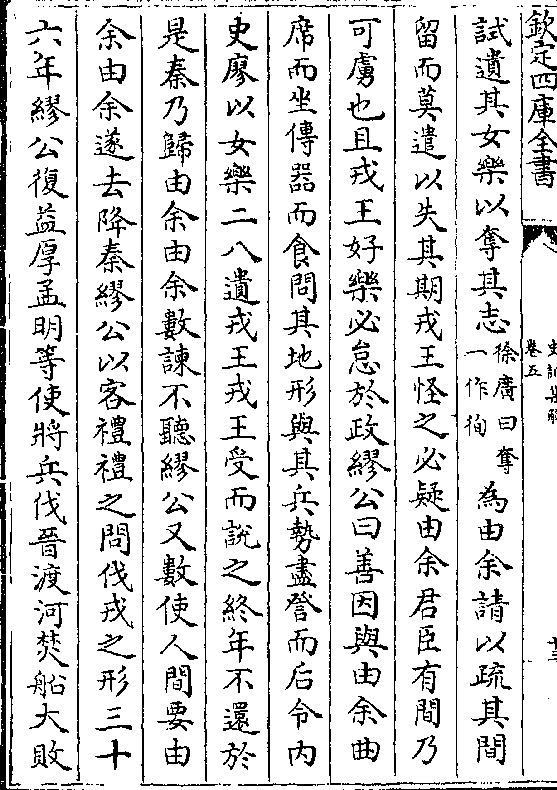 欽定四庫全書
史記集解
卷五
十三
試遺其女樂以奪其志徐廣曰奪一作徇為由余請以疏其間
留而莫遣以失其期戎王怪之必疑由余君臣有間乃
可虜也且戎王好樂必怠於政繆公曰善因與由余曲
席而坐傳器而食問其地形與其兵勢盡詧而后令內
史廖以女樂二八遺戎王戎王受而說之終年不還於
是秦乃歸由余由余數諫不聽繆公又數使人間要由
余由余遂去降秦繆公以客禮禮之問伐戎之形三十
六年繆公復益厚孟明等使將兵伐晉渡河焚船大敗